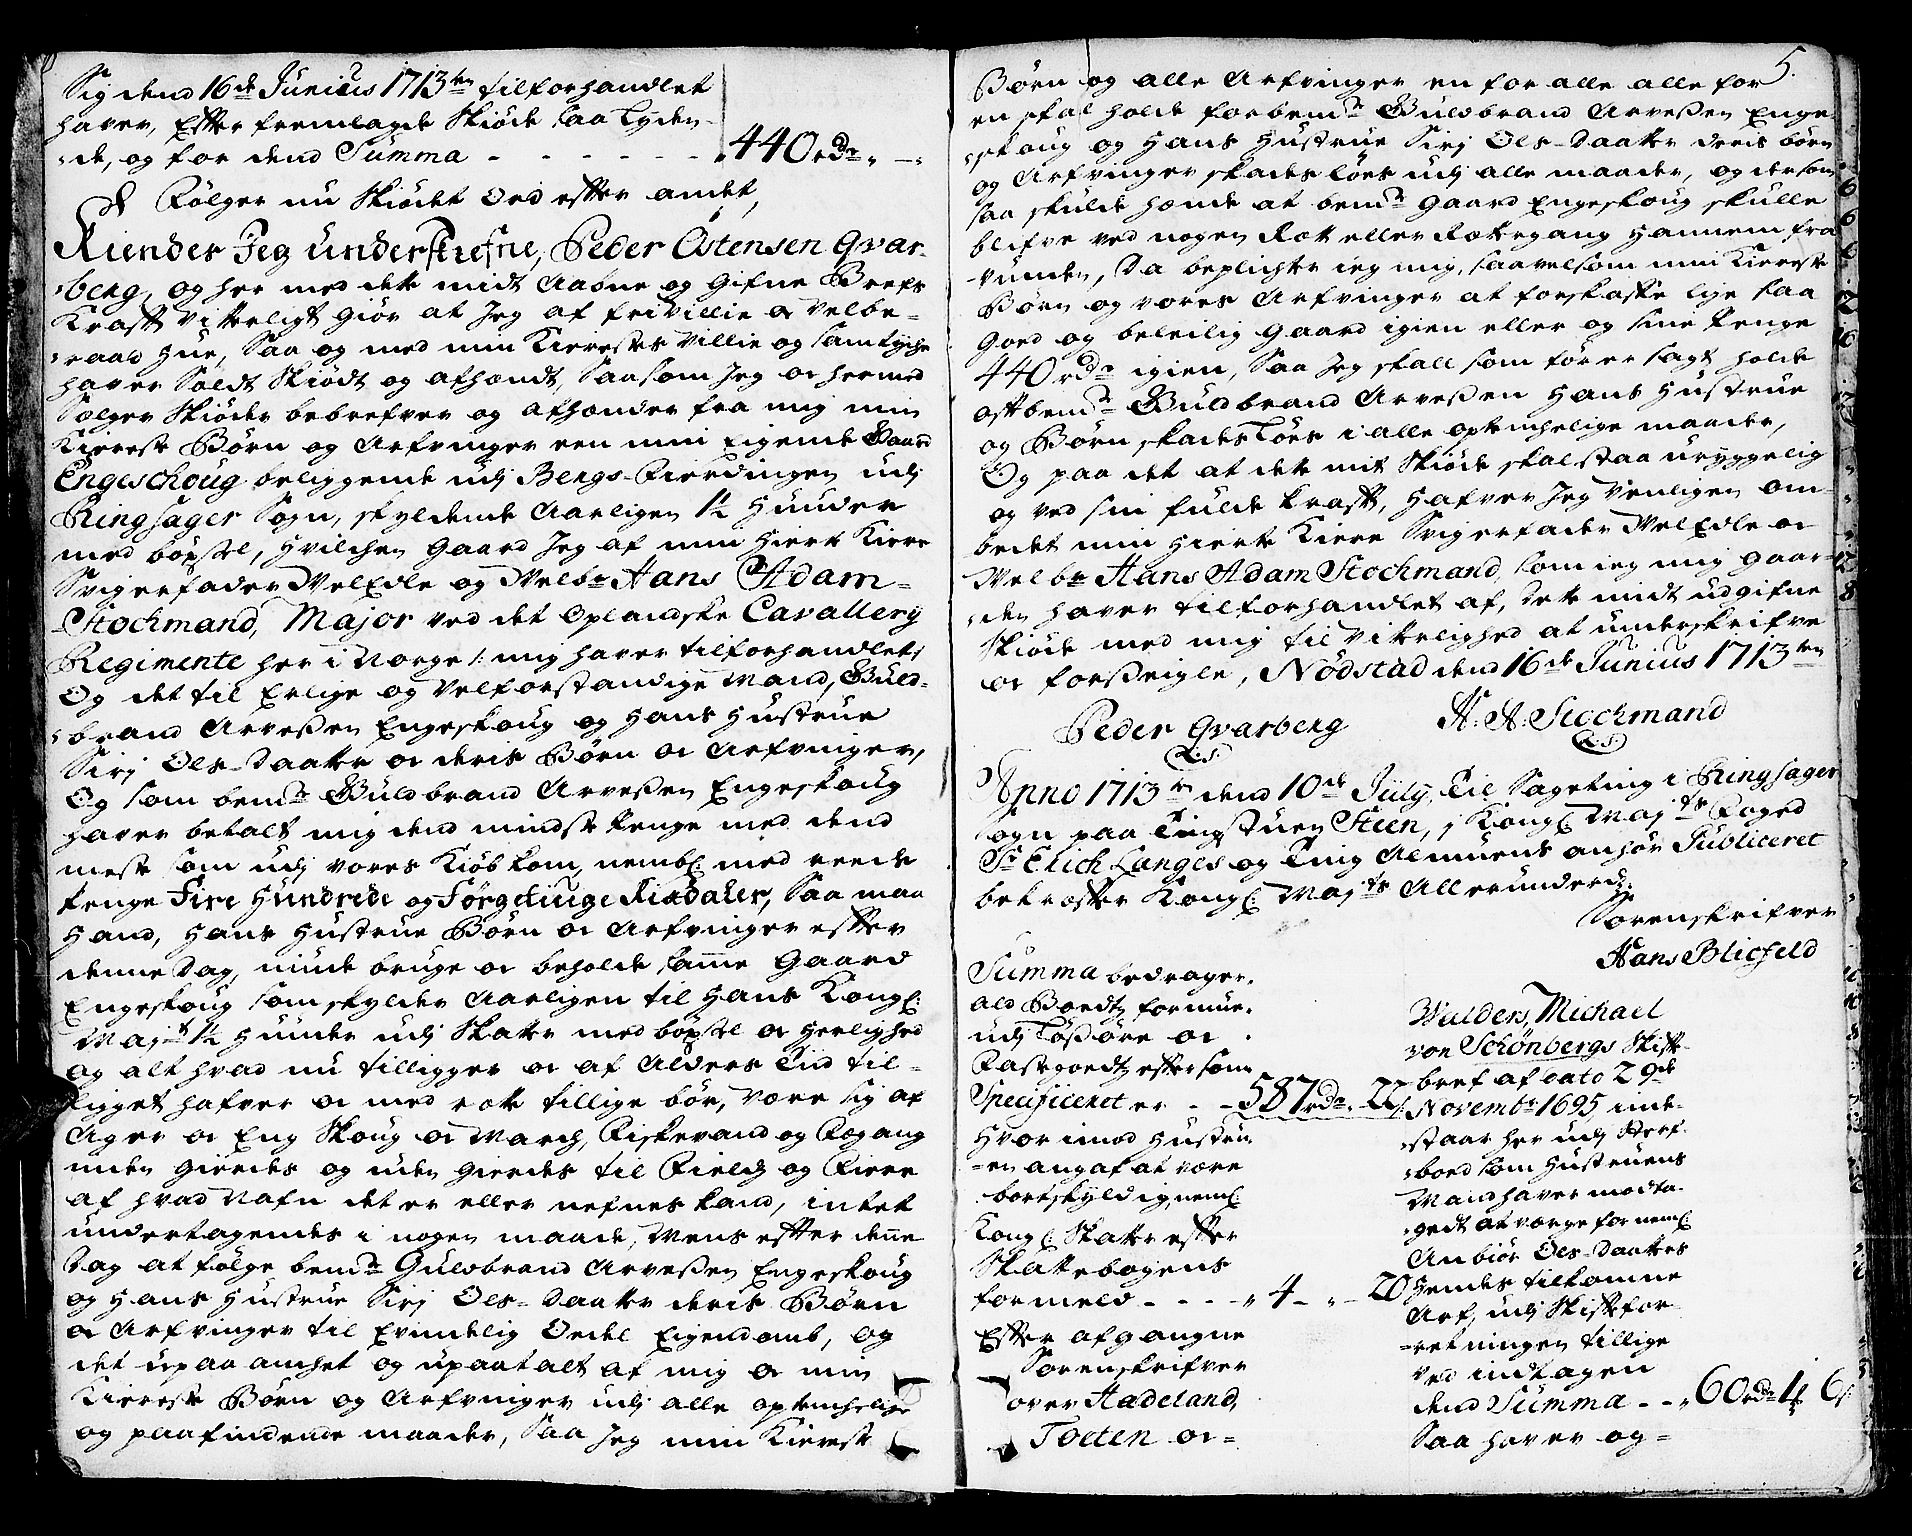 Sig dend 16de Junius 1713ten tilforhandlet
haver, Efter fremlagde Skiöde saa Lyden-
de, og for dend Summa - - - - - - 440 rdr „ — „
Fölger nu Skiödet Ord efter andet,
Kiender Jeg Underskrefne, Peder Östensen Qvar-
berg, og her med dette midt Aabne og Gifne Brefs
Krafft Vitterligt giör at Jeg af frivillie or Velbe-
raad Hue, Saa og med min Kierestes Villie og Samtyche
haver Soldt Skiödt og afhændt, Saasom Jeg or hermed
Sælger Skiöder bebrefver og afhænder fra mig min
Kiereste Börn og Arfvinger een min Eigende Gaard
Engeschoug beliggende udj Bergs-Fierdingen udj
Ringsager Sogn, skyldende Aarligen 1½ Hunder
med böxsel, Hvilchen Gaard Jeg af min Hierte Kiere
Svigerfader WelEdle og Welbr Hans Adam
Stochmand, Major ved det Oplandske Cavallery
Regimente her i Norge /: mig haver tilforhandlet:/
Og det til Erlige og Velforstandige Mand, Guld-
brand Arvessen Engeskoug og Hans Hustrue
Sirj Ols-Daatter or deris Börn or Arfvinger,
Og som bemte Guldbrand Arvessen Engeskoug
haver betalt mig dend mindste penge med dend
meste som udj vores Kiöb kom, nembl: med reede
penge Fire Hundrede og Förgetiuge Rixdaler, Saa maa
Hand, Hans Hustrue Börn or Arfvinger efter
denne Dag, niude bruge or beholde samme Gaard
Engeskoug som skylder Aarligen til Hans Kongl:
Maj:t 1½ Hunder udj Skatter med böxsel or Herlighed
og alt hvad nu tilligger or af Alders Tid til-
ligget hafver or med rette tillige bör, Være sig af
Ager or Eng Skoug or March, Fiskevand og Fægang
inden gierdes og uden gierdes til Field og Fiere
af hvad Nafn det er eller nefnes kand, intet
undertagendes i nogen maade, Mens efter denne
Dag at fölge bemte Guldbrand Arvessen Engeskoug
og Hans Hustrue Sirj Ols-Daatter deris Börn
or Arfvinger til Evindelig Odel Eigendomb, og
det upaaanchet og upaatalt af mig or min
Kiereste Börn og Arfvinger udj alle optenchelige
og paafindende maader, Saa Jeg min Kiereste
5.
Börn og alle Arfvinger en for alle alle for
en skal holde forbemte Guldbrand Arvessen Enge-
skoug og Hans Hustrue Sirj Ols-Daatter deris börn
og Arfvinger skadeslöes udj alle maader, og dersom
saa skulde hænde at bemte Gaard Engeskoug skulle
blifve ved nogen Ret eller Rettergang Hannem fra
vunden, Da beplichter ieg mig, saavelsom min Kiereste
Börn og vores Arfvinger at forskaffe lige saa
goed og beleilig Gaard igien eller og sine penge
440 rdr igien, Saa Jeg skall som för er sagt holde
oftbemte Guldbrand Arvessen Hans Hustrue
og Börn skadeslöes i alle optenchelige maader,
Og paa det at dette mit Skiöde skal staa uryggelig
og ved sin fulde krafft, Hafver Jeg Venligen om-
bedet min Hierte Kiere Svigerfader WelEdle or
Welbr Hans Adam Stochmand, som ieg mig gaar-
den haver tilforhandlet af, Dette midt udgifne
Skiöde med mig til Vitterlighed at underskrifve
or forseigle, Nödstad dend 16de Junius 1713ten
Peder Qvarberg H: A: Stochmand
L.S. L.S.
Anno 1713ten dend 10de July, Til Sageting i Ringsager
Sogn paa Tingstuen Steen, i Kongl: Maj:ts Foged
Sr Erich Langes og Ting Almuens anhör Publiceret
bekræfter Kongl: Maj:ts Allerunderd:
Sorenskrifver
Hans Blicfeld
Summa bedrager
ald Boedtz formue
udj Lössöre or
Fastegoedtz eftersom
Specificeret er - - 587 rdr „ 22 s:
Hvorimod Hustru-
en angaf at være
bortskyldig, neml:
Kongl: Skatter efter
Skattebogens
formeld - - - - „ 4 - „ - 20
Efter afgangne
Sorenskrifver
over Hadeland,
Toeten or-
Walders, Michael
von Schönbergs Skifte
bref af Dato 29de
Novembr 1695, inde-
staar her udj Sterf-
boed som Hustruens
Mand haver modta-
gedt at værge for neml:
Anbiör Ols-Daatters
Hendes tilkomne
Arf, udj Skiftefor-
retningen tillige
ved indtagen
dend Summa - - „ 60 rdr 1 6 s:
Saa haver og-